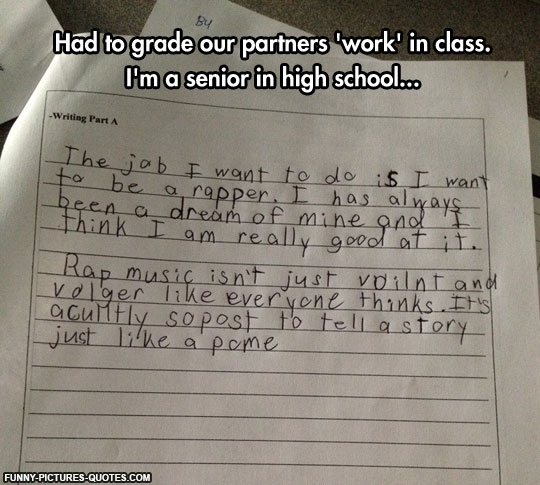 BY
Had to grade our partners 'work' in class.
I'm a senior in high school...
-Writing Part A
The job I want to do is I want
to be a rapper. I has always
been a dream of mine and I
think I am really good at it.
Rap music isn't just voilnt and
volger like everyone thinks. It's
aculltly sopost to tell a story
just like a pome
FUNNY-PICTURES-QUOTES.COM